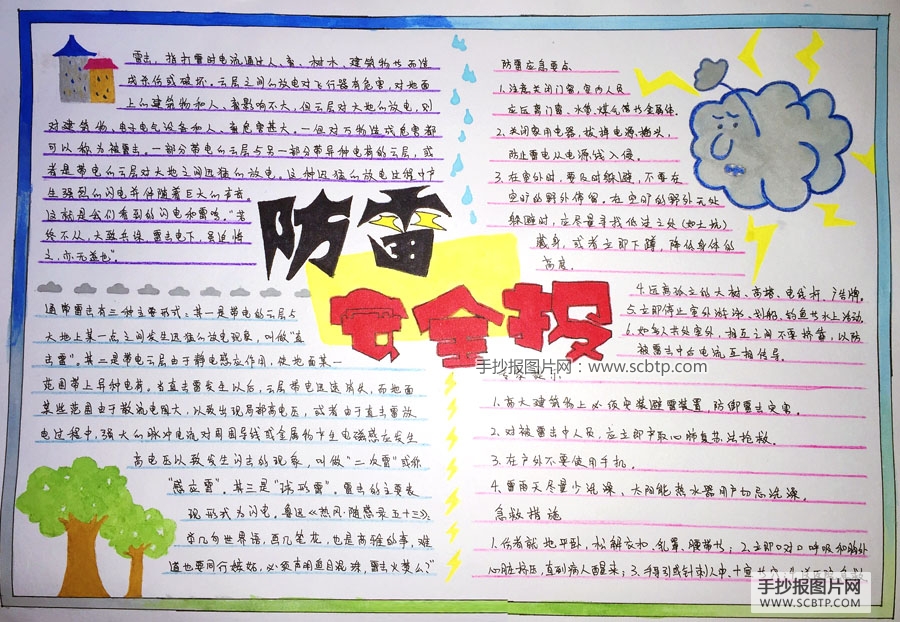 雷击，指打雷时电流通过人、畜、树木、建筑物等而造
成杀伤或破坏。云层之间的放电对飞行器有危害，对地面
上的建筑物和人、畜影响不大，但云层对大地的放电，则
对建筑物、电子电气设备和人、畜危害甚大。一但对万物造成危害都
可以称为被雷击。一部分带电的云层与另一部分带异种电荷的云层，或
者是带电的云层对大地之间迅猛的放电，这种迅猛的放电过程中产
生强烈的闪电并伴随着巨大的声音。
这就是我们看到的闪电和雷鸣。"若
终不从，大磁兵保，雷击电下，虽追悔
之，亦无益也"。
防雷
安全报
通常雷击有三种主要形式：其一是带电的云层与
大地上某一点之间发生迅猛的放电现象，叫做"直
击雷"。其二是带电云层由于静电感应作用，使地面某一
范围带上异种电荷。当直击雷发生以后，云层带电迅速消失，而地面
某些范围由于散流电阻大，以致出现局部高电压，或者由于直击雷放
电过程中，强大的脉冲电流对周围导线或金属物产生电磁感应发生
高电压以致发生闪击的现象，叫做"二次雷"或称
"感应雷"。其三是"球形雷"。雷击的主要表
现形式为闪电。鲁迅《热风·随感录五十三》：
学几句世界语，画几笔花，也是高雅的事，难
道也要同行嫉妒，必须声明鱼目混珠，雷击火焚么？"
防雷应急要点
1.注意关闭门窗，室内人员
应远离门窗、水管、煤气管等金属体。
2.关闭家用电器，拔掉电源插头，
防止雷电从电源线入侵。
3.在室外时，要及时躲避，不要在
空旷的野外停留。在空旷的野外无处
躲避时，应尽量寻找低洼之处（如土坑）
藏身，或者立即下蹲，降低身体的
高度。
4.远离孤立的大树、高塔、电线杆、广告牌。
5.立即停止室外游泳、划船、钓鱼等水上活动。
6.如多人共处室外，相互之间不要挤靠，以防
被雷击中后电流互相传导。
手抄报图片网：www.scbtp.com
1.高大建筑物上必须安装避雷装置，防御雷击灾害。
2.对被雷击中人员，应立即采取心肺复苏法抢救。
3.在户外不要使用手机。
4.雷雨天尽量少洗澡，太阳能热水器用户切忌洗澡。
急救措施
1.伤者就地平卧，松解衣扣、乳罩、腰带等；2.立即口对口呼吸和胸外
心脏挤压，直到病人醒来；3.手导引或针刺人中、十宣
手抄报图片网
WWW.SCBTP.COM